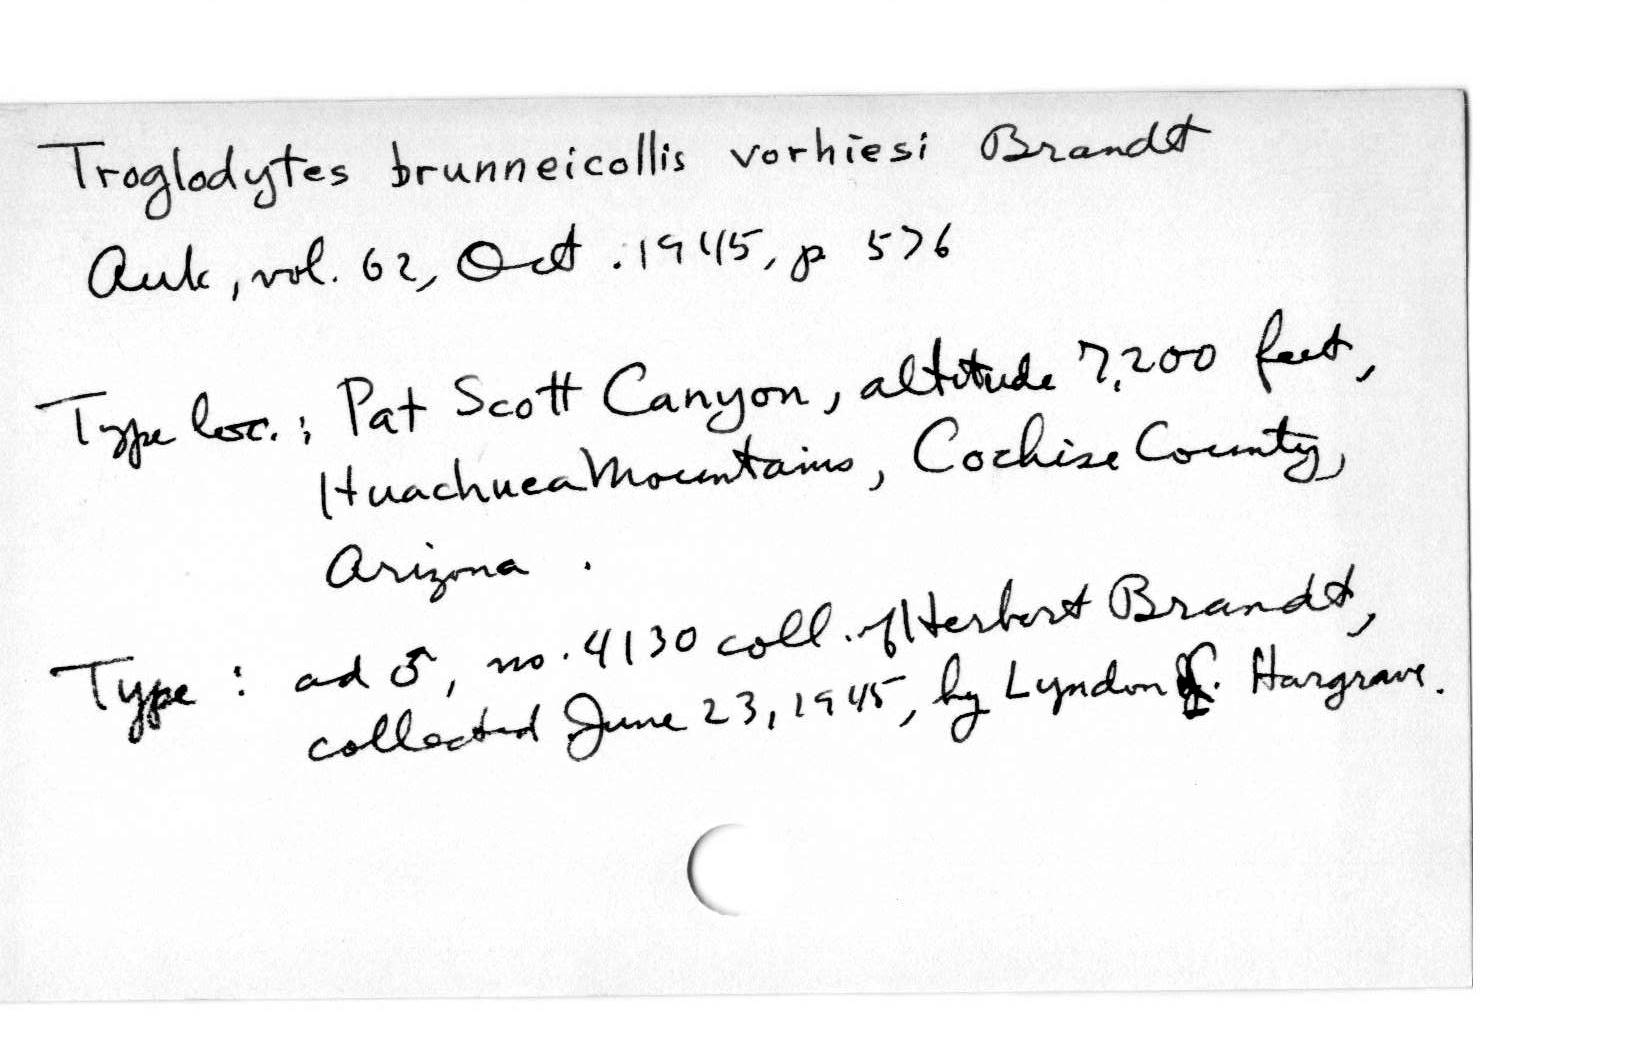 Troglodytes brunneicollis vorhiesi Brandt
Auk, vol. 62, Oct. 1945, p 576
Type loc.: Pat Scott Canyon, altitude 7,200 feet,
Huachuca Mountains, Cochise County,
Arizona.
Type: ad ♂, no. 4130 coll. of Herbert Brandt,
collected June 23, 1945, by Lyndon Hargrave.